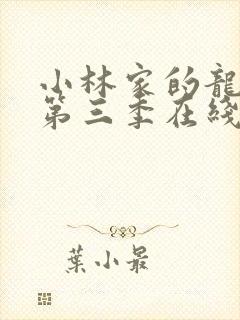 小林家的龍
第三季在綫
葉小最